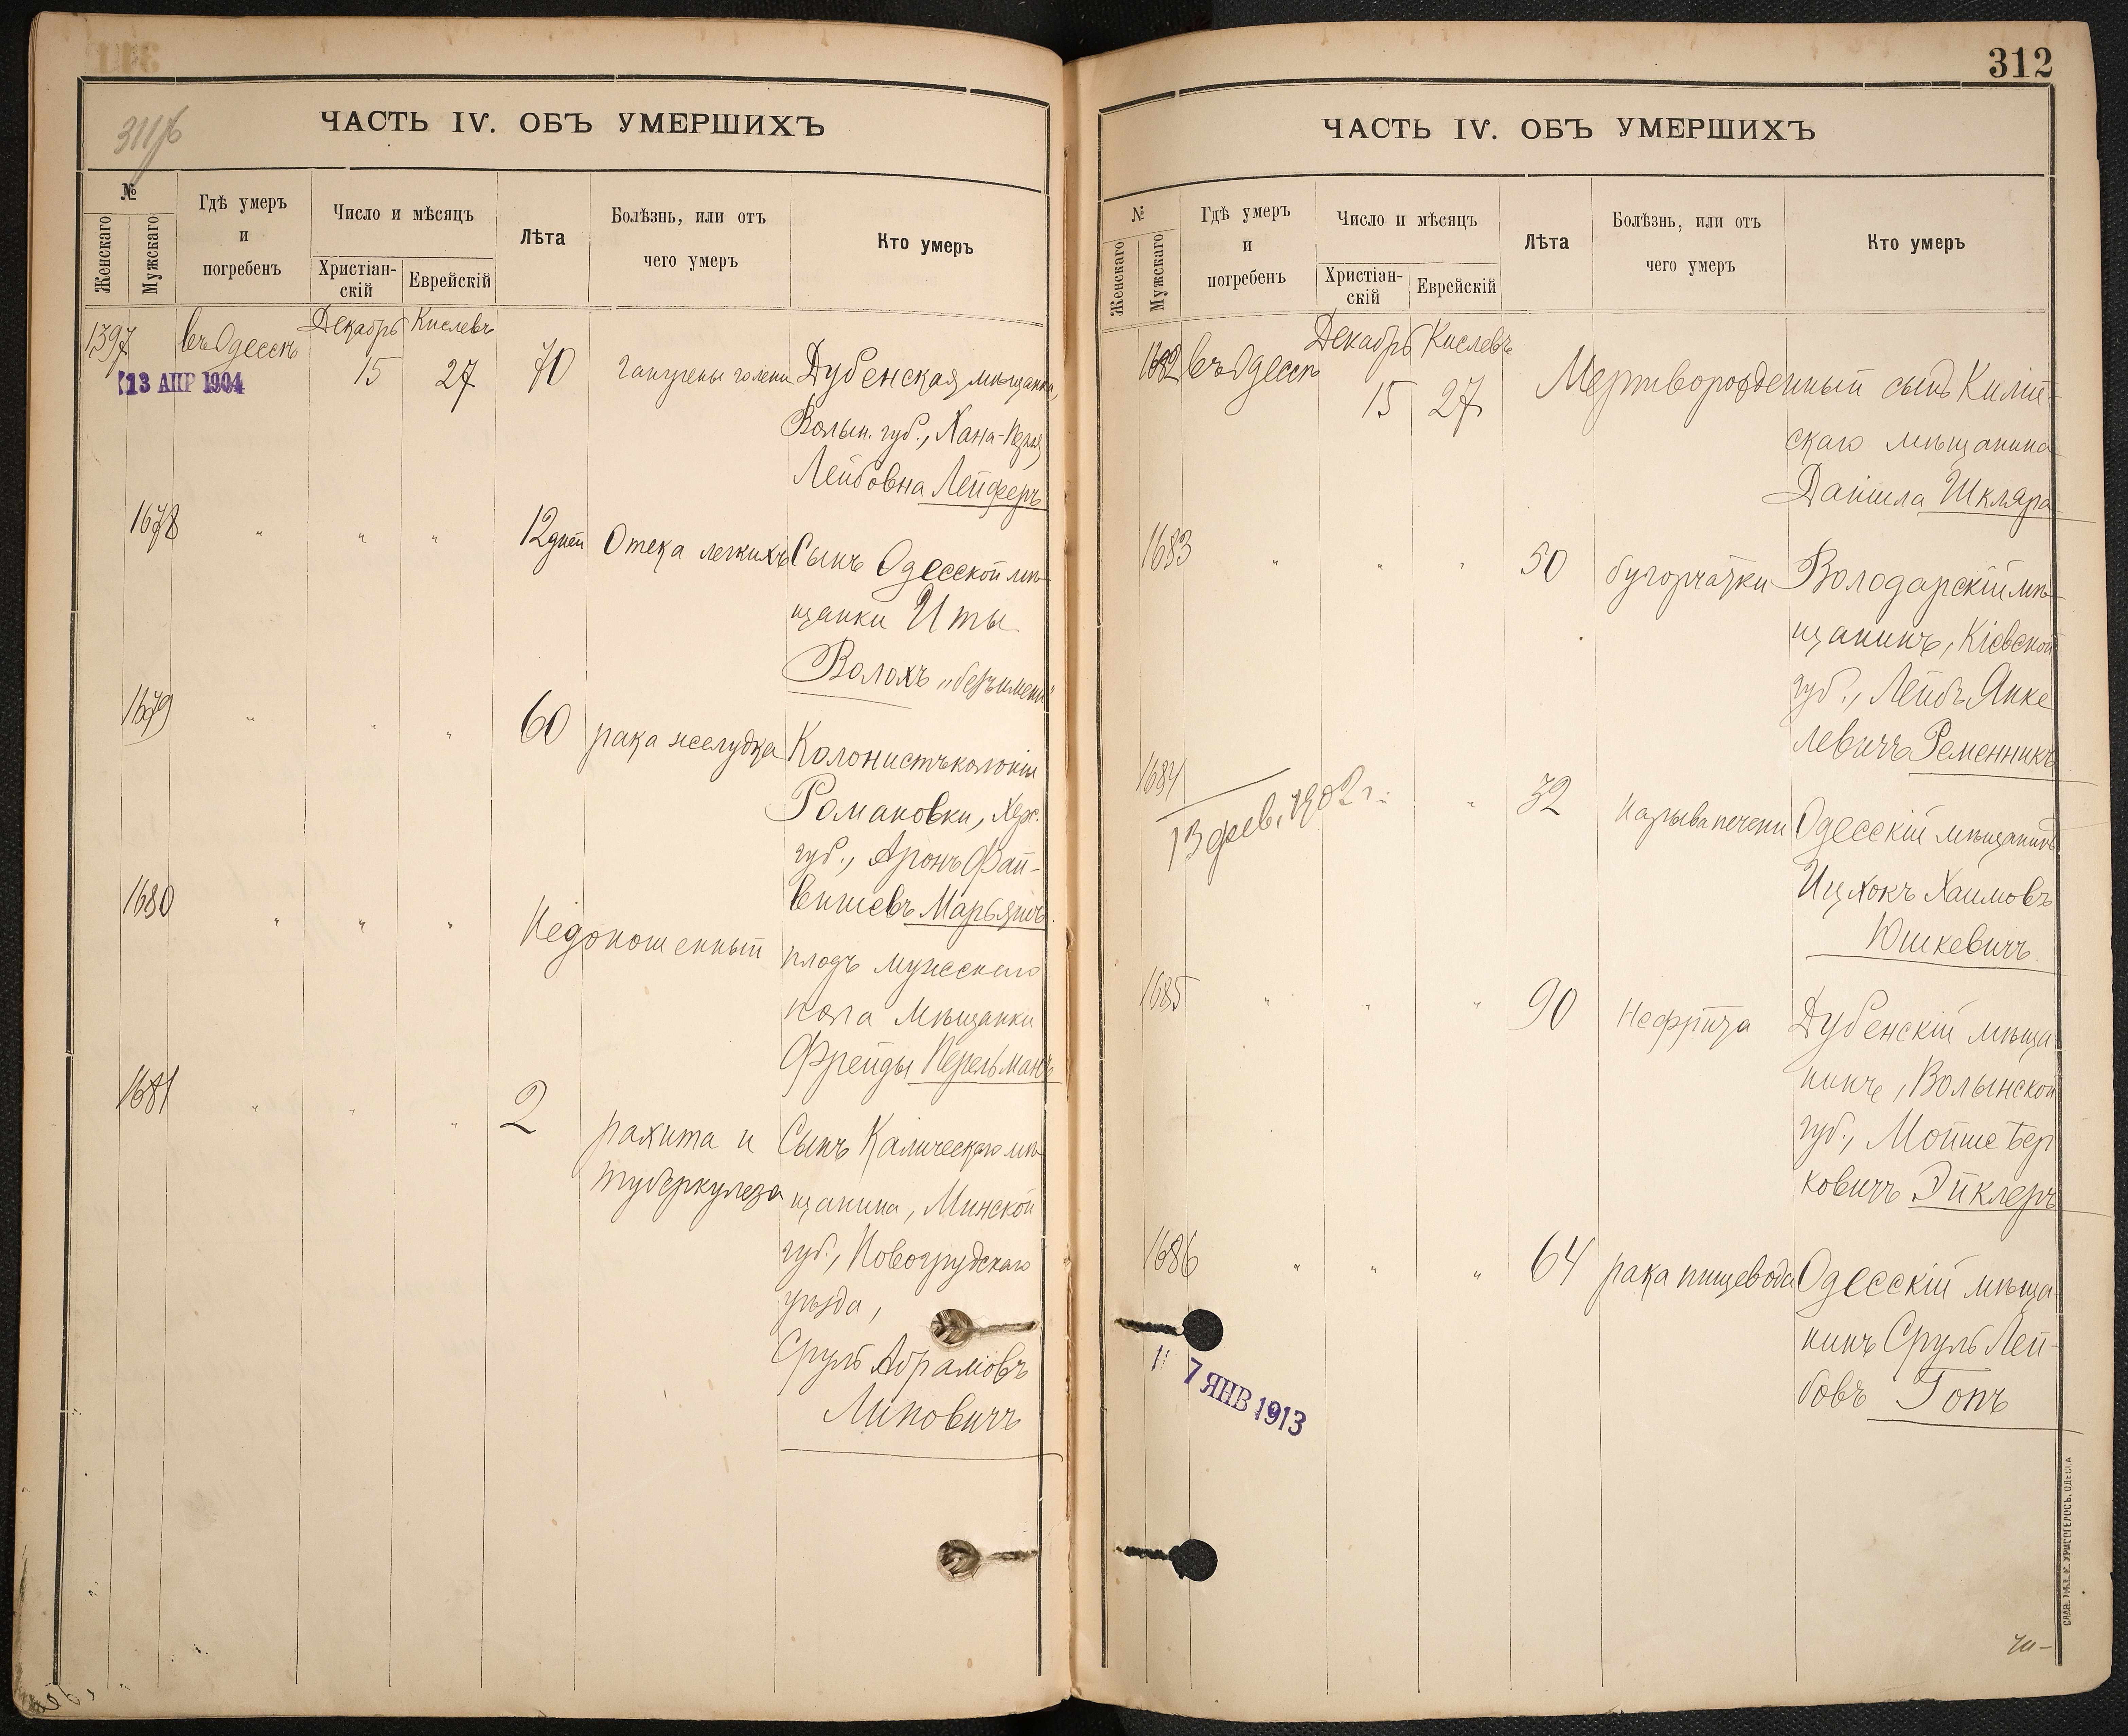 311/б
ЧАСТЬ IV. ОБЪ УМЕРШИХЪ
№
Женскаго
Мужскаго
Гдѣ умеръ
и
погребенъ
Число и мѣсяцъ
Христіан-
скій
Еврейскій
Лѣта
Болѣзнь, или отъ
чего умеръ
Кто умеръ
1397 въ Одессѣ Декабрь 15 Кислевъ 27 70 гангрены голени Дубенская мѣщанка,
13 АПР 1904
Волын. губ., Хана-
Лейбовна Лейферъ
1678 " " " 12 дней Отека легкихъ Сынъ Одесской мѣ-
щанки Иты
Волохъ „безъ имени"
1679 " " " 60 рака желудка Колонистъ колоніи
Романовки, Хер.
губ., Аронъ Фай-
вишевъ Марьяшъ.
1680 " " " Недоношенный плодъ мужескаго
пола мѣщанки
Фрейды Перельманъ
1681 " " " 2 рахита и Сынъ мѣ-
туберкулеза щанина, Минской
губ., Новогрудскаго
уѣзда,
Сруль Абрамовъ
Липовичъ
312
ЧАСТЬ IV. ОБЪ УМЕРШИХЪ
№
Женскаго
Мужскаго
Гдѣ умеръ
и
погребенъ
Число и мѣсяцъ
Христіан-
скій
Еврейскій
Лѣта
Болѣзнь, или отъ
чего умеръ
Кто умеръ
1682 въ Одессѣ Декабрь 15 Кислевъ 27 Мертворожденный сынъ Килій-
скаго мѣщанина
Даніила Шкляра
1683 " " " 50 бугорчатки Володарскій мѣ-
щанинъ, Кіевской
губ., Лейбъ Янке
левичъ Ременникъ
1684 " " 32 Нарыва печени Одесскій мѣщанинъ
13 фев. 1902 г.
Ицхокъ Хаимовъ
Юшкевичъ.
1685 " " " 90 Нефрита Дубенскій мѣща-
нинъ, Волынской
губ., Мойше Бер
ковичъ Эйклеръ
1686 " " " 64 рака пищевода Одесскій мѣща-
нинъ Сруль Лей-
бовъ Гопъ
7 ЯНВ 1913